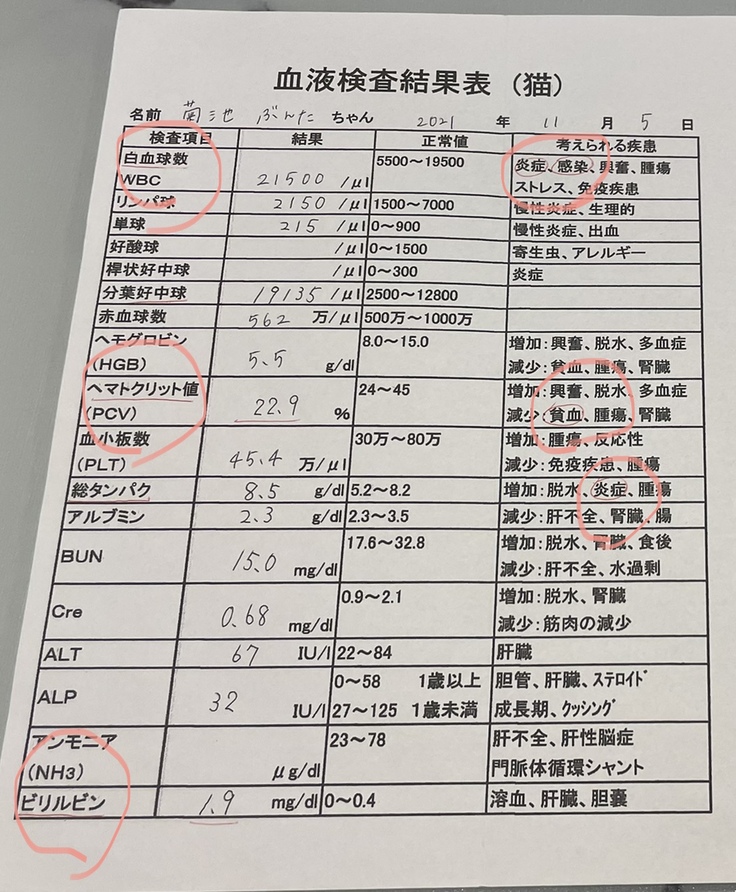 血液検査結果表（猫）
名前 菊池 ぶんた ちゃん 2021 年 11 月 5 日
検査項目 結果 正常値 考えられる疾患
白血球数 5500～19500 炎症、感染、興奮、腫瘍
WBC 21500 /μl ストレス、免疫疾患
リンパ球 2150 /μl 1500～7000 慢性炎症、生理的
単球 215 /μl 0～900 慢性炎症、出血
好酸球 /μl 0～1500 寄生虫、アレルギー
桿状好中球 /μl 0～300 炎症
分葉好中球 19135 /μl 2500～12800
赤血球数 562 万/μl 500万～1000万
ヘモグロビン 8.0～15.0 増加：興奮、脱水、多血症
(HGB) 5.5 g/dl 減少：貧血、腫瘍、腎臓
ヘマトクリット値 24～45 増加：興奮、脱水、多血症
(PCV) 22.9 % 減少：貧血、腫瘍、腎臓
血小板数 30万～80万 増加：腫瘍、反応性
(PLT) 45.4 万/μl 減少：免疫疾患、腫瘍
総タンパク 8.5 g/dl 5.2～8.2 増加：脱水、炎症、腫瘍
アルブミン 2.3 g/dl 2.3～3.5 減少：肝不全、腎臓、腸
BUN 15.0 mg/dl 17.6～32.8 増加：脱水、腎臓、食後
減少：肝不全、水過剰
Cre 0.68 mg/dl 0.9～2.1 増加：脱水、腎臓
減少：筋肉の減少
ALT 67 IU/l 22～84 肝臓
ALP 32 0～58 1歳以上 胆管、肝臓、ステロイド
IU/l 27～125 1歳未満 成長期、クッシング
アンモニア 23～78 肝不全、肝性脳症
(NH3) μg/dl 門脈体循環シャント
ビリルビン 1.9 mg/dl 0～0.4 溶血、肝臓、胆嚢